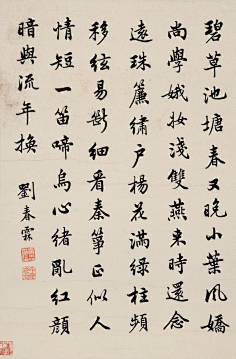 碧草池塘春又晚小葉風嬌
尚學娥妝淺雙燕來時還念
遠珠簾繡戶楊花滿綠柱頻
移絃易斷細看秦箏正似人
情短一笛啼烏心緒亂紅顏
暗與流年換
劉春霖